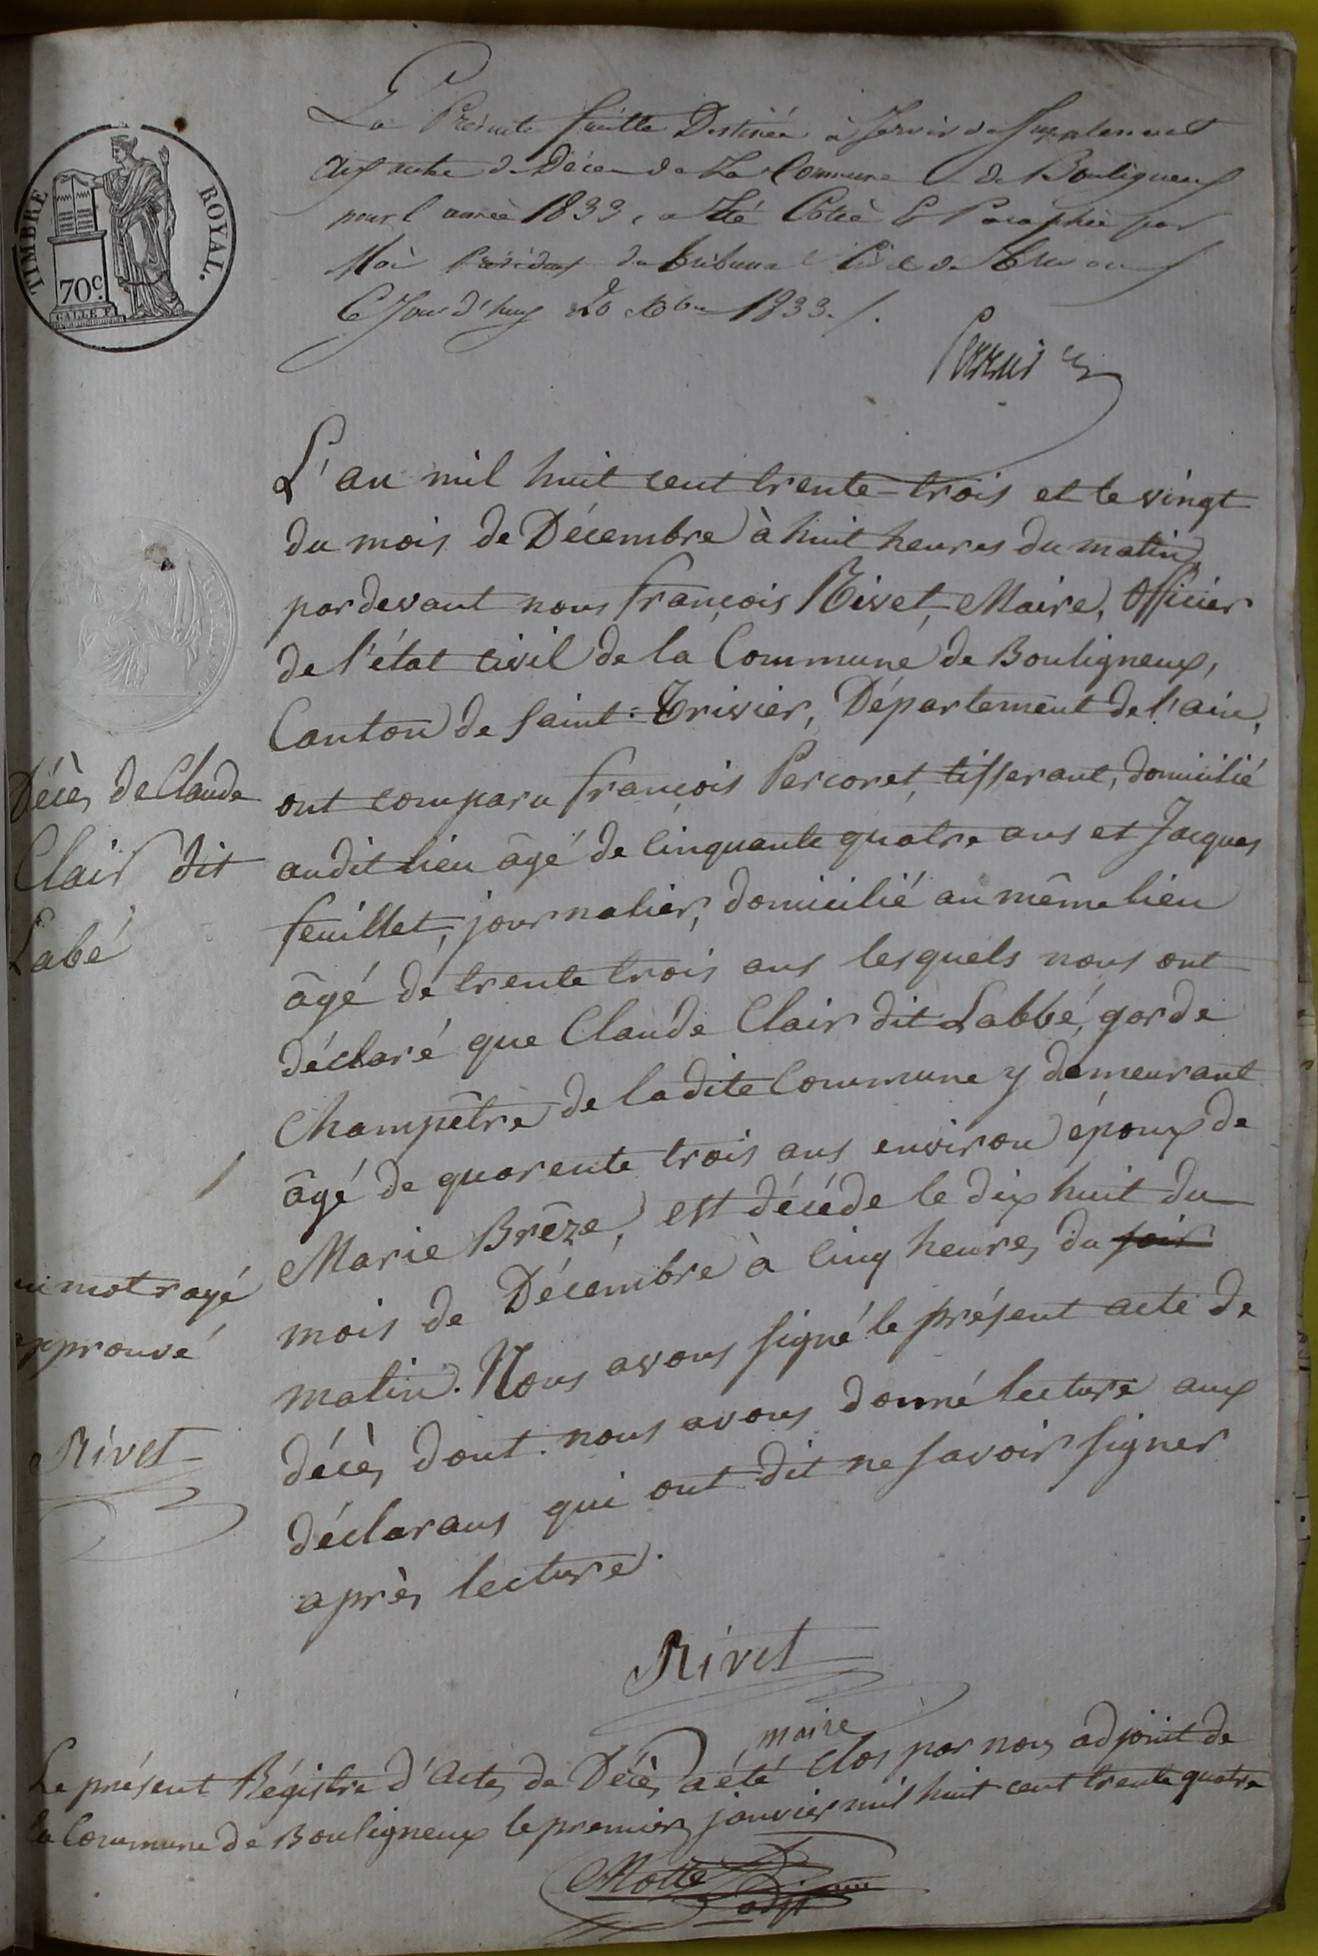 TIMBRE ROYAL.
70c.
La Présente feuille Destinée à Servir de Supplement
aux actes de Décès de La Commune de Bouligneux
pour l'année 1833, a Eté Cotée & Paraphée par
Nous Président du tribunal Civil de
Ce Jour d'huy 20 1833./.
L'an mil huit cent trente-trois et le vingt
du mois de Décembre à huit heures du matin,
pardevant nous françois Rivet, Maire, Officier
de l'état civil de la Commune de Bouligneux,
Canton de Saint-Trivier, Département de l'ain,
ont comparu françois Percoret, tisserant, domicilié
audit lieu âgé de Cinquante quatre ans et Jacques
feuillet, journalier, domicilié au même lieu
âgé de trente trois ans lesquels nous ont
déclaré que Claude Clair dit Labbé, garde
Champêtre de ladite Commune y demeurant
âgé de quarente trois ans environ époux de
Marie Brêze, est décéde le dix huit du
mois de Décembre à Cinq heures du soir
matin. Nous avons signé le présent acte de
décès dont nous avons donné lecture aux
déclarans qui ont dit ne savoir signer
après lecture.
Rivet
Décès de Claude
Clair dit
Labé
un mot rayé
approuvé
Rivet
maire
Le présent Régistre d'Actes de Décès a été clos par nous adjoint de
la Commune de Bouligneux le premier janvier mil huit cent trente quatre
Motte
adjt